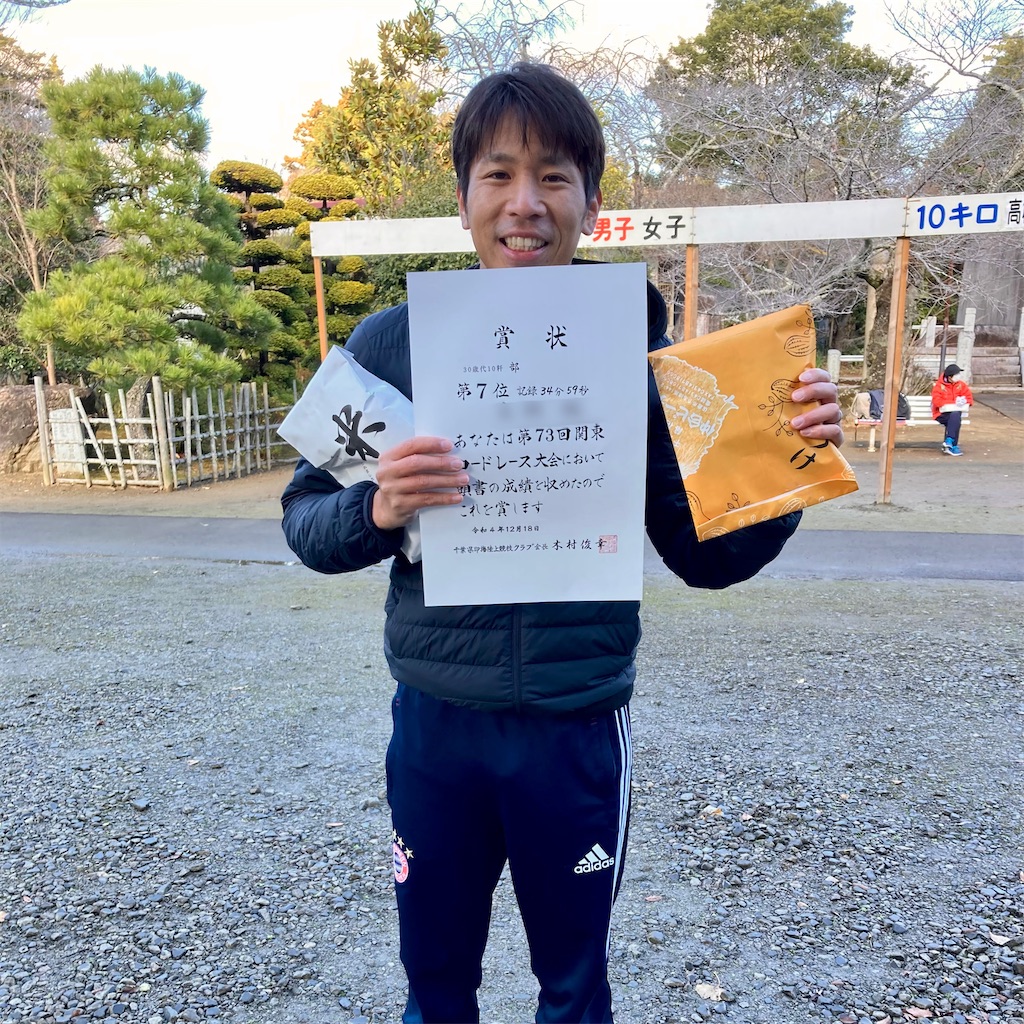 男子 女子
10キロ 高校
米
賞状
30歳代10キロ 部
第7位 記録34分59秒
あなたは第73回関東
ロードレース大会において
頭書の成績を収めたので
これを賞します
令和4年12月18日
千葉県印旛陸上競技クラブ会長 木村俊幸
adidas